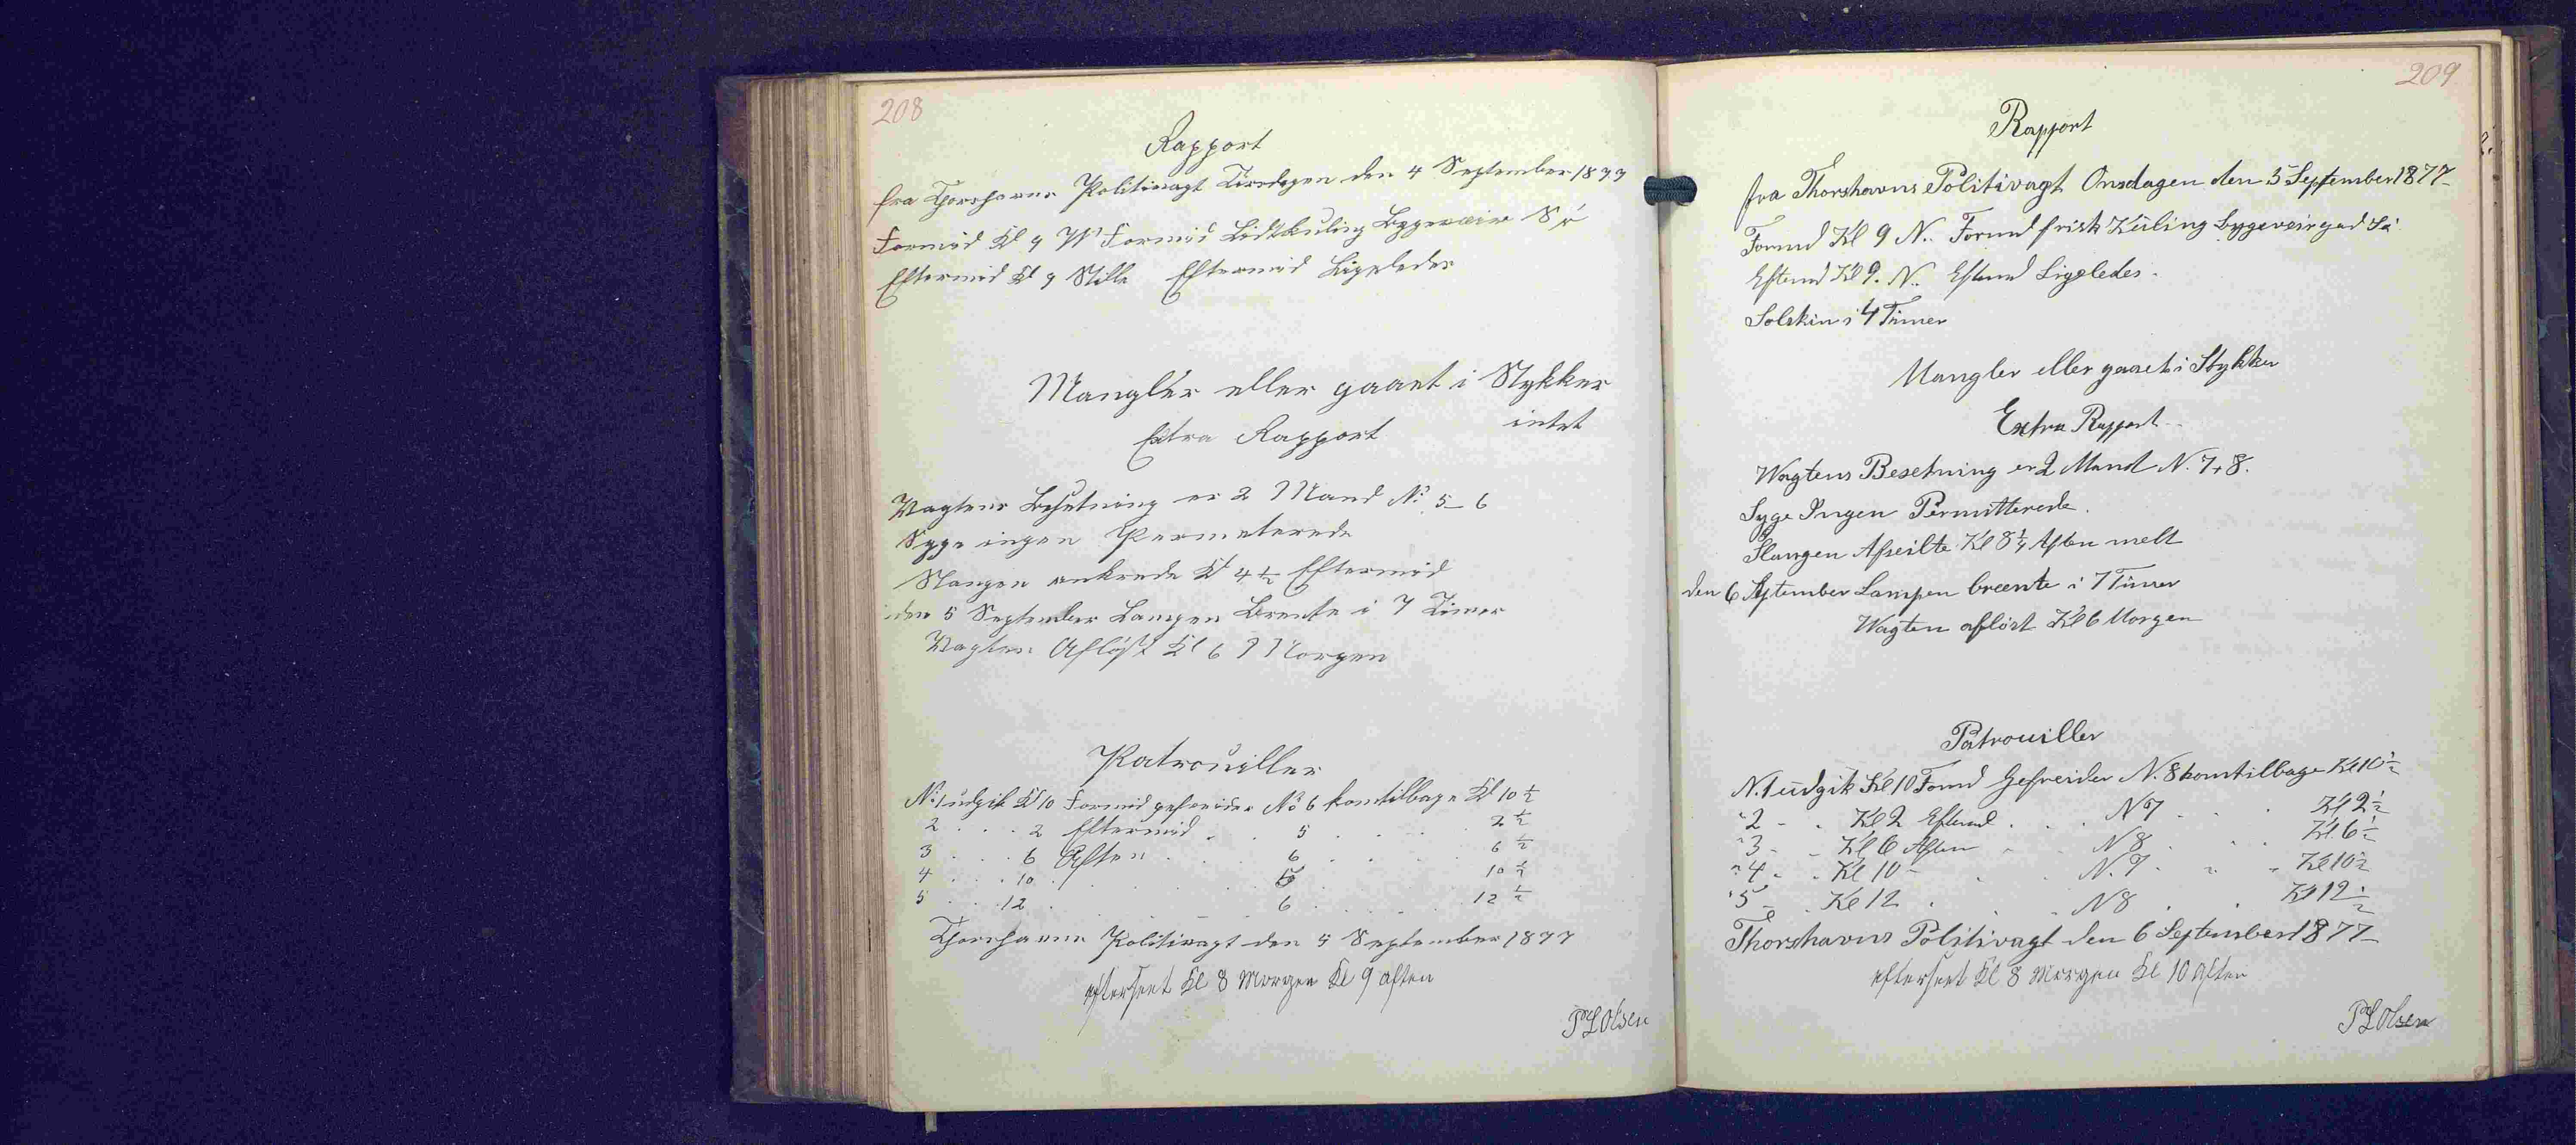 208
Rapport
fra Thorshavns Politivagt Tirsdagen den 4 September 1877
Formid Kl 9 W Formid Lidtkuling Bygeveir Sö
Eftermid Kl 9 Stille Eftermid Ligeledes
Mangler eller gaaet i Stykker
intet
Extra Rapport
Vagtens Besetning er 2 Mand No 5_6
Syge ingen Permeterede
Slangen ankrede Kl 4½ Eftermid
den 5 September Lampen Brente i 7 Timer
Vagten Aflöst Kl 6 Morgen
Patrouiller
No 1 udgik Kl 10 Formid gefreider No 6 komtilbage Kl 10½
2 . . . 2 Eftermid . . 5 . . . . 2½
3 . . . 6 Aften . . 6 . . . . 6½
4 . . . 10 . . . 5 . . . 10½
5 . . 12 . . . 6 . . . . 12½
Thorshavns Politivagt den 5 September 1877
efterseet Kl 8 Morgen Kl 9 aften
P L Olsen
209
Rapport
fra Thorshavns Politivagt Onsdagen den 5 September 1877
Formd Kl 9 N. Formd frisk Kuling bygeveir god Sö
Eftmd Kl 9. N. Eftmd Ligeledes.
Solskin i 4 Timer
Mangler eller gaaet i Stykker
Extra Rapport
Wagtens Besetning er 2 Mand N. 7+8.
Syge Ingen Permitterede.
Slangen Afseilte Kl 8¼ Aften melt
den 6 September Lampen breente i 7 Timer
Wagten aflöst Kl 6 Morgen
Patrouiller
N. 1 udgik Kl 10 Formd Gefreider N. 8 komtilbage Kl 10½
"2 - . Kl 2 Eftmd . . . N 7 . . Kl 2½
"3 - . Kl 6 Aften . . N 8 . . . Kl 6½
"4 - . Kl 10 - . . N. 7 . " . Kl 10½
"5 - . Kl 12 . . . N 8 . . Kl 12½
Thorshavns Politivagt den 6 September 1877
efterseet Kl 8 Morgen Kl 10 Aften
P L Olsen